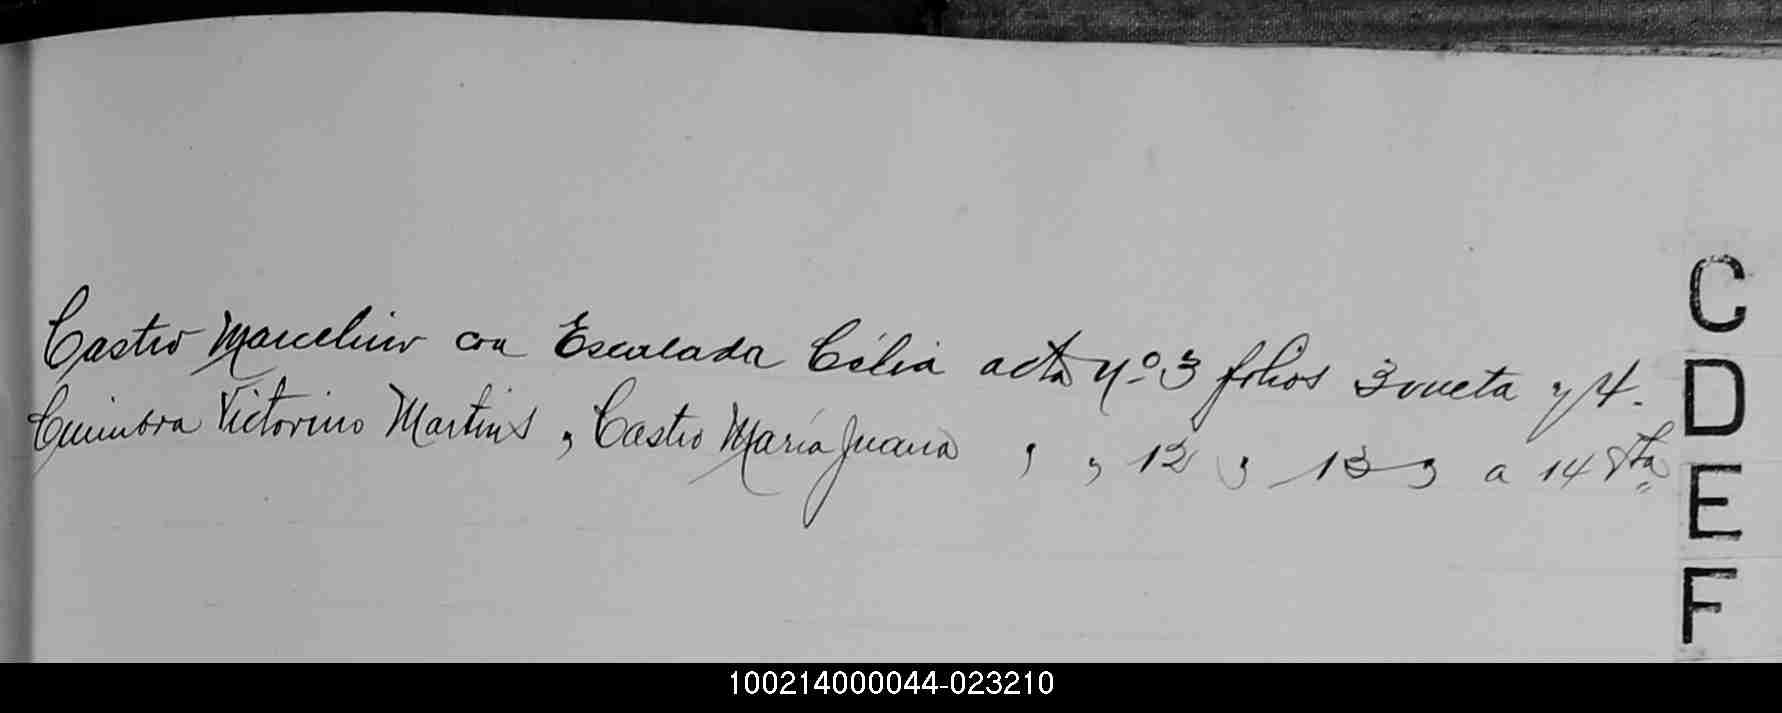 Castro Marcelino con Escalada Célia acta Nº 3 folios 3 vuelta y 4.
Cuimbra Victorino Martins , Castro María Juana , , 12 , 13 , a 14 Vta
C
D
E
F
100214000044-023210